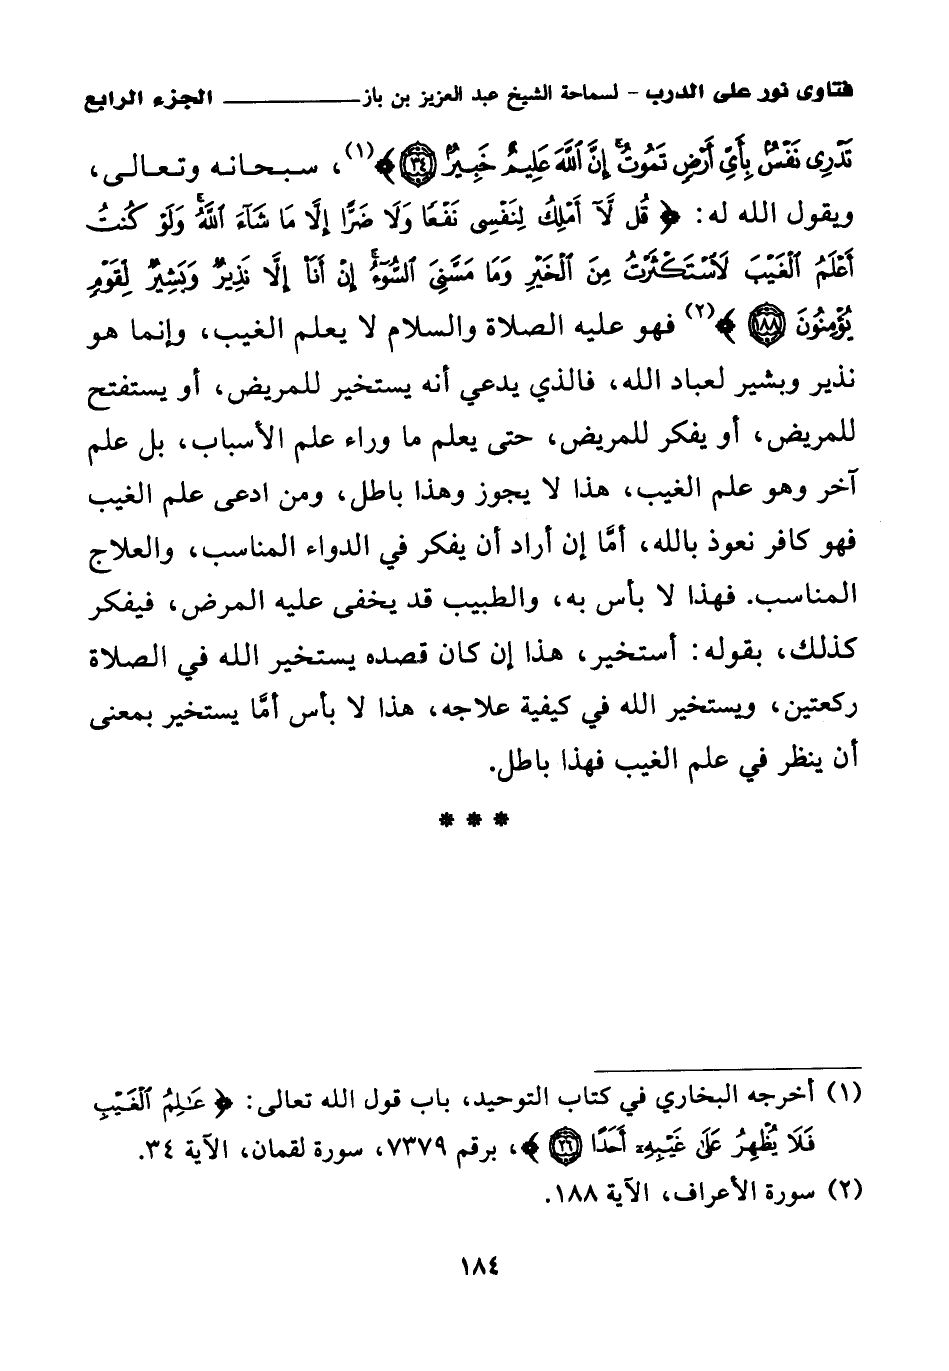 فتاوى نور على الدرب - لسماحة الشيخ عبد العزيز بن باز ــــــــــــــــ الجزء الرابع
تَدْرِى نَفْسٌۢ بِأَىِّ أَرْضٍ تَمُوتُ ۚ إِنَّ ٱللَّهَ عَلِيمٌ خَبِيرٌۢ ٣٤ ﴾(١)، سبحانه وتعالى،
ويقول الله له: ﴿ قُل لَّآ أَمْلِكُ لِنَفْسِى نَفْعًا وَلَا ضَرًّا إِلَّا مَا شَآءَ ٱللَّهُ ۚ وَلَوْ كُنتُ
أَعْلَمُ ٱلْغَيْبَ لَٱسْتَكْثَرْتُ مِنَ ٱلْخَيْرِ وَمَا مَسَّنِىَ ٱلسُّوٓءُ ۚ إِنْ أَنَا۠ إِلَّا نَذِيرٌ وَبَشِيرٌ لِّقَوْمٍ
يُؤْمِنُونَ ١٨٨ ﴾(٢) فهو عليه الصلاة والسلام لا يعلم الغيب، وإنما هو
نذير وبشير لعباد الله، فالذي يدعي أنه يستخير للمريض، أو يستفتح
للمريض، أو يفكر للمريض، حتى يعلم ما وراء علم الأسباب، بل علم
آخر وهو علم الغيب، هذا لا يجوز وهذا باطل، ومن ادعى علم الغيب
فهو كافر نعوذ بالله، أمَّا إن أراد أن يفكر في الدواء المناسب، والعلاج
المناسب. فهذا لا بأس به، والطبيب قد يخفى عليه المرض، فيفكر
كذلك، بقوله: أستخير، هذا إن كان قصده يستخير الله في الصلاة
ركعتين، ويستخير الله في كيفية علاجه، هذا لا بأس أمَّا يستخير بمعنى
أن ينظر في علم الغيب فهذا باطل.
* * *
(١) أخرجه البخاري في كتاب التوحيد، باب قول الله تعالى: ﴿ عَـٰلِمُ ٱلْغَيْبِ
فَلَا يُظْهِرُ عَلَىٰ غَيْبِهِۦٓ أَحَدًا ٢٦ ﴾، برقم ٧٣٧٩، سورة لقمان، الآية ٣٤.
(٢) سورة الأعراف، الآية ١٨٨.
١٨٤